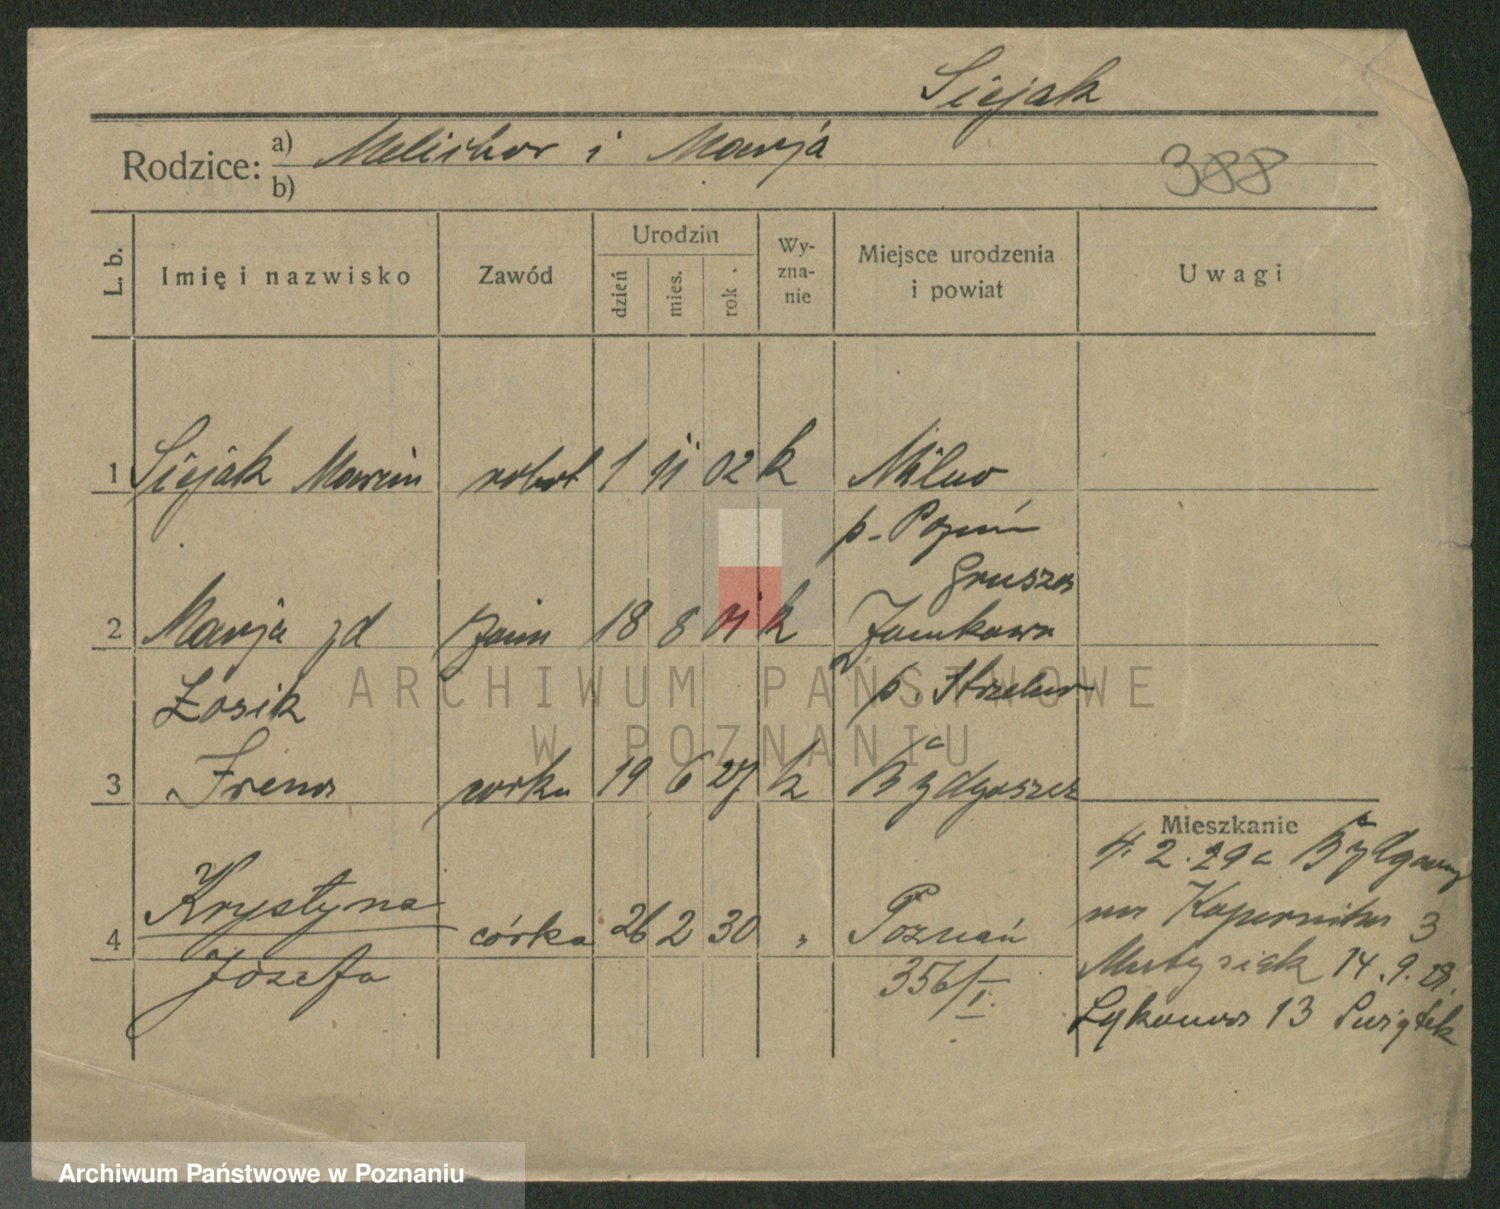 Siejak
Rodzice: a) Melchior i Marja
b)
388
L. b. Imię i nazwisko Zawód Urodzin dzień mies. rok Wy-zna-nie Miejsce urodzenia i powiat Uwagi
1 Siejak Marcin robot 1 11 02 k
p. Poznań
2 Marja zd 18 8 01 k
p. Strzelno
Łosik
3 Irena córka 19 6 27 k Bydgoszcz
Mieszkanie
4. 2. 29 z Bydgoszczy
Kopernika 3
4 Krystyna córka 26 2 30 " Poznań
Józefa
356/I.
Matysiak 14. 9.
13
ARCHIWUM PAŃSTWOWE
W POZNANIU
Archiwum Państwowe w Poznaniu